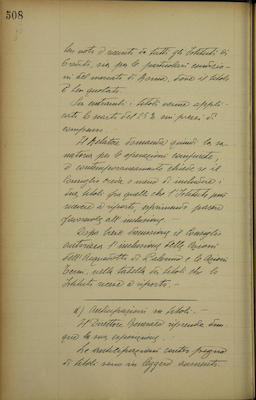 508
ben noti e accetti da tutti gli Istituti di
Credito, sia per le particolari condizio-
ni del mercato di Roma, dove il titolo
è ben quotato.
Su entrambi i titoli venne applic-
cato lo scarto del 25% sui prezzi di
compenso.
Il Relatore domanda quindi la sa-
natoria per le operazioni compiute,
e contemporaneamente chiede se il
Consiglio creda o meno di includere i
due titoli fra quelli che l'Istituto può
ricevere a riporto, esprimendo parere
favorevole all'inclusione. —
Dopo breve discussione il Consiglio
autorizza l'inclusione delle Azioni
dell'Acquedotto di Palermo e le Azioni
nella tabella dei titoli che lo
Istituto riceve a riporto. —
a) Anticipazioni su titoli. —
Il Direttore Generale riprende dun-
que la sua esposizione.
Le anticipazioni contro pegno
di titoli sono in leggero aumento.